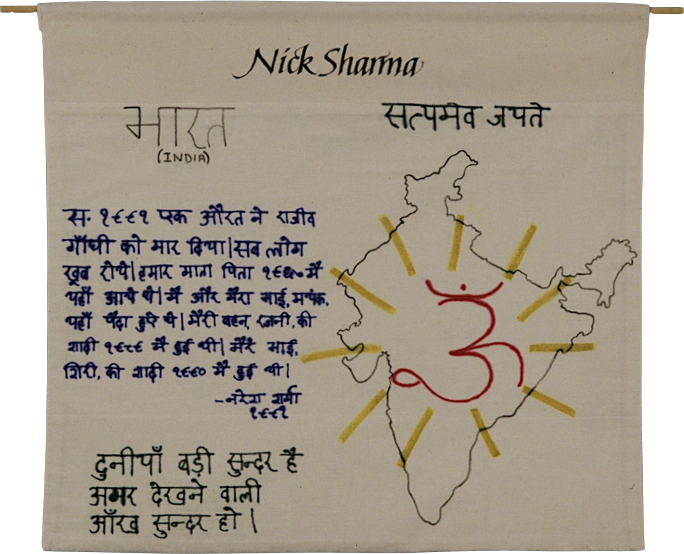 Nick Sharma
भारत
(INDIA)
सत्यमेव जयते
स. १९९१ एक औरत ने राजीव
गाँधी को मार दिया। सब लोग
खूब रोये। हमार माता पिता १९६० में
यहाँ आये थे। मैं और मेरा भाई, मयंक,
यहाँ पैदा हुए थे। मेरी बहन, रजनी, की
शादी १९८६ में हुई थी। मेरे भाई,
गिरी, की शादी १९९० में हुई थी।
-नरेश शर्मा
१९९१
दुनीयाँ बड़ी सुन्दर है
अगर देखने वाली
आँख सुन्दर हो।
ॐ